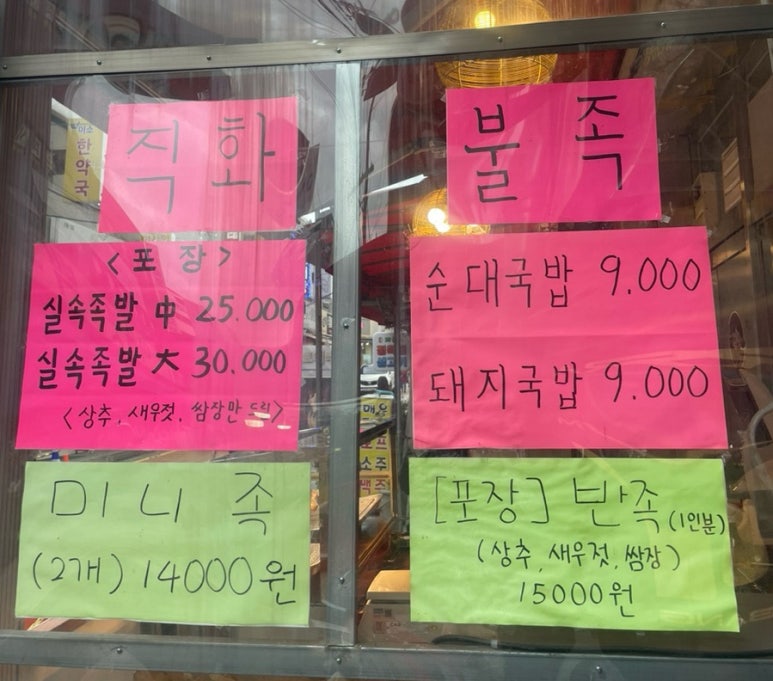 직화
불족
<포장>
실속족발 中 25.000
실속족발 大 30.000
<상추, 새우젓, 쌈장만 드림>
순대국밥 9.000
돼지국밥 9.000
미니 족
(2개) 14000원
[포장] 반족 (1인분)
(상추, 새우젓, 쌈장)
15000원
한약국
소주
맥주